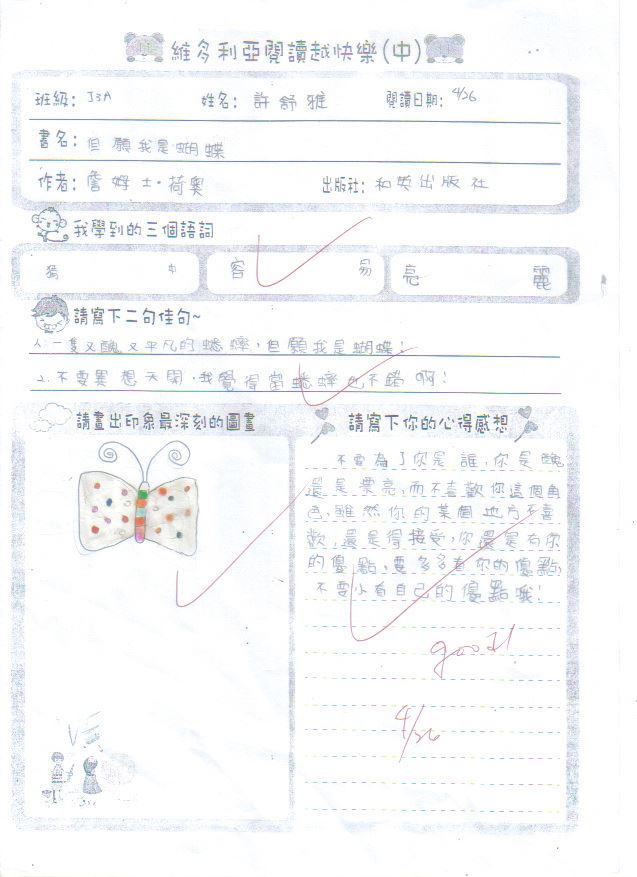 維多利亞閱讀越快樂(中)
班級: J3A 姓名: 許舒雅 閱讀日期: 4/26
書名: 但願我是蝴蝶
作者: 詹姆士·荷奧 出版社: 和英出版社
我學到的三個語詞
猜中 容易 亮麗
請寫下二句佳句~
1. 一隻又醜又平凡的蟋蟀,但願我是蝴蝶!
2. 不要異想天開,我覺得當蟋蟀也不錯啊!
請畫出印象最深刻的圖畫
請寫下你的心得感想
不要為了你是誰,你是醜
還是漂亮,而不喜歡你這個角
色,雖然你的某個地方不喜
歡,還是得接受,你還是有你
的優點,要多多看你的優點,
不要小看自己的優點哦!
good!
4/26